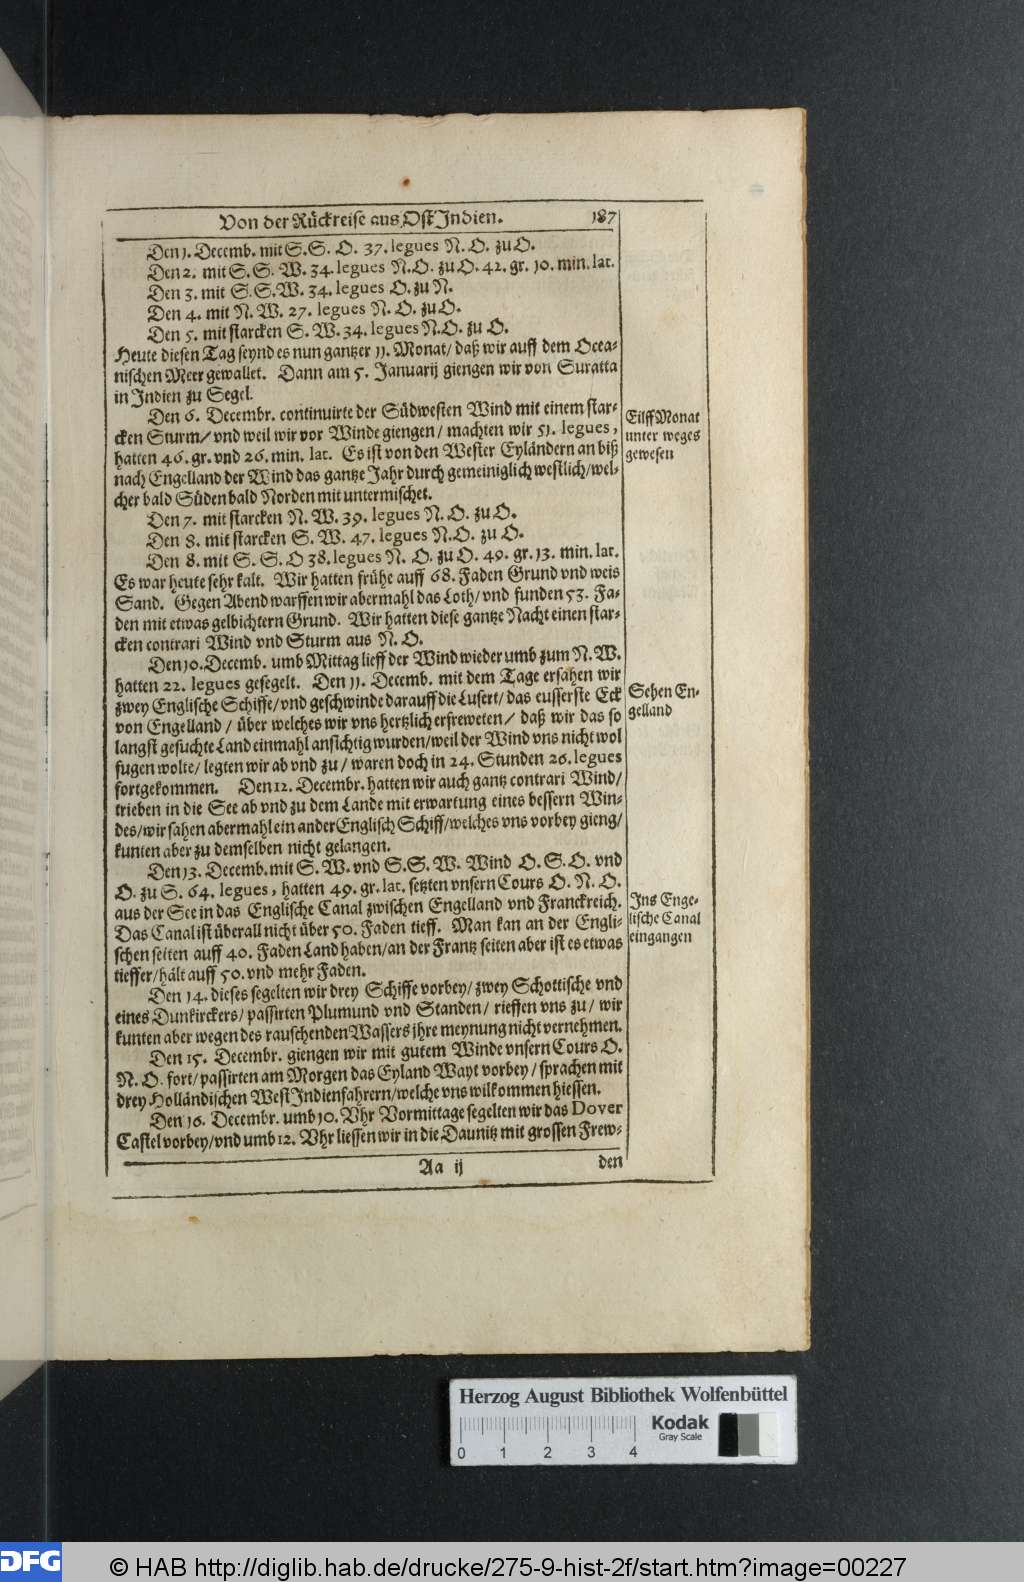 Von der Rückreise aus Ost Indien. 187
Den 1. Decemb. mit S. S. O. 37. legues N. O. zu O.
Den 2. mit S. S. W. 34. legues N. O. zu O. 42. gr. 10. min. lat.
Den 3. mit S. S. W. 34. legues O. zu N.
Den 4. mit N. W. 27. legues N. O. zu O.
Den 5. mit starcken S. W. 34. legues N. O. zu O.
Heute diesen Tag seynd es nun gantzer 11. Monat/ daß wir auff dem Ocea-
nischen Meer gewallet. Dann am 5. Januarij giengen wir von Suratta
in Indien zu Segel.
Den 6. Decembr. continuirte der Südwesten Wind mit einem star-
cken Sturm/ vnd weil wir vor Winde giengen/ machten wir 51. legues,
hatten 46. gr. vnd 26. min. lat. Es ist von den Wester Eyländern an biß
nach Engelland der Wind das gantze Jahr durch gemeiniglich westlich/ wel-
cher bald Süden bald Norden mit untermischet.
Eilff Monat
unter weges
gewesen
Den 7. mit starcken N. W. 39. legues N. O. zu O.
Den 8. mit starcken S. W. 47. legues N. O. zu O.
Den 8. mit S. S. O 38. legues N. O. zu O. 49. gr. 13. min. lat.
Es war heute sehr kalt. Wir hatten frühe auff 68. Faden Grund vnd weis
Sand. Gegen Abend warffen wir abermahl das Loth/ vnd funden 53. Fa-
den mit etwas gelbichtern Grund. Wir hatten diese gantze Nacht einen star-
cken contrari Wind vnd Sturm aus N. O.
Den 10. Decemb. umb Mittag lieff der Wind wieder umb zum N. W.
hatten 22. legues gesegelt. Den 11. Decemb. mit dem Tage ersahen wir
zwey Englische Schiffe/ vnd geschwinde darauff die Lusert/ das eusserste Eck
von Engelland/ über welches wir vns hertzlich erfreweten/ daß wir das so
langst gesuchte Land einmahl ansichtig wurden/ weil der Wind vns nicht wol
fugen wolte/ legten wir ab vnd zu/ waren doch in 24. Stunden 26. legues
fortgekommen. Den 12. Decembr. hatten wir auch gantz contrari Wind/
trieben in die See ab vnd zu dem Lande mit erwartung eines bessern Win-
des/ wir sahen abermahl ein ander Englisch Schiff/ welches vns vorbey gieng/
kunten aber zu demselben nicht gelangen.
Sehen En-
gelland
Den 13. Decemb. mit S. W. vnd S. S. W. Wind O. S. O. vnd
O. zu S. 64. legues, hatten 49. gr. lat. setzten vnsern Cours O. N. O.
aus der See in das Englische Canal zwischen Engelland vnd Franckreich.
Das Canal ist überall nicht über 50. Faden tieff. Man kan an der Engli-
schen seiten auff 40. Faden Land haben/ an der Frantz seiten aber ist es etwas
tieffer/ hält auff 50. vnd mehr Faden.
Ins Enge-
lische Canal
eingangen
Den 14. dieses segelten wir drey Schiffe vorbey/ zwey Schottische vnd
eines Dunkirckers/ passirten Plumund vnd Standen/ rieffen vns zu/ wir
kunten aber wegen des rauschenden Wassers jhre meynung nicht vernehmen.
Den 15. Decembr. giengen wir mit gutem Winde vnsern Cours O.
N. O. fort/ passirten am Morgen das Eyland Wayt vorbey/ sprachen mit
drey Holländischen West Indienfahrern/ welche vns wilkommen hiessen.
Den 16. Decembr. umb 10. Vhr Vormittage segelten wir das Dover
Castel vorbey/ vnd umb 12. Vhr liessen wir in die Daunitz mit grossen Frew-
Aa ij den
Herzog August Bibliothek Wolfenbüttel
0 1 2 3 4
Kodak
Gray Scale
DFG © HAB http://diglib.hab.de/drucke/275-9-hist-2f/start.htm?image=00227